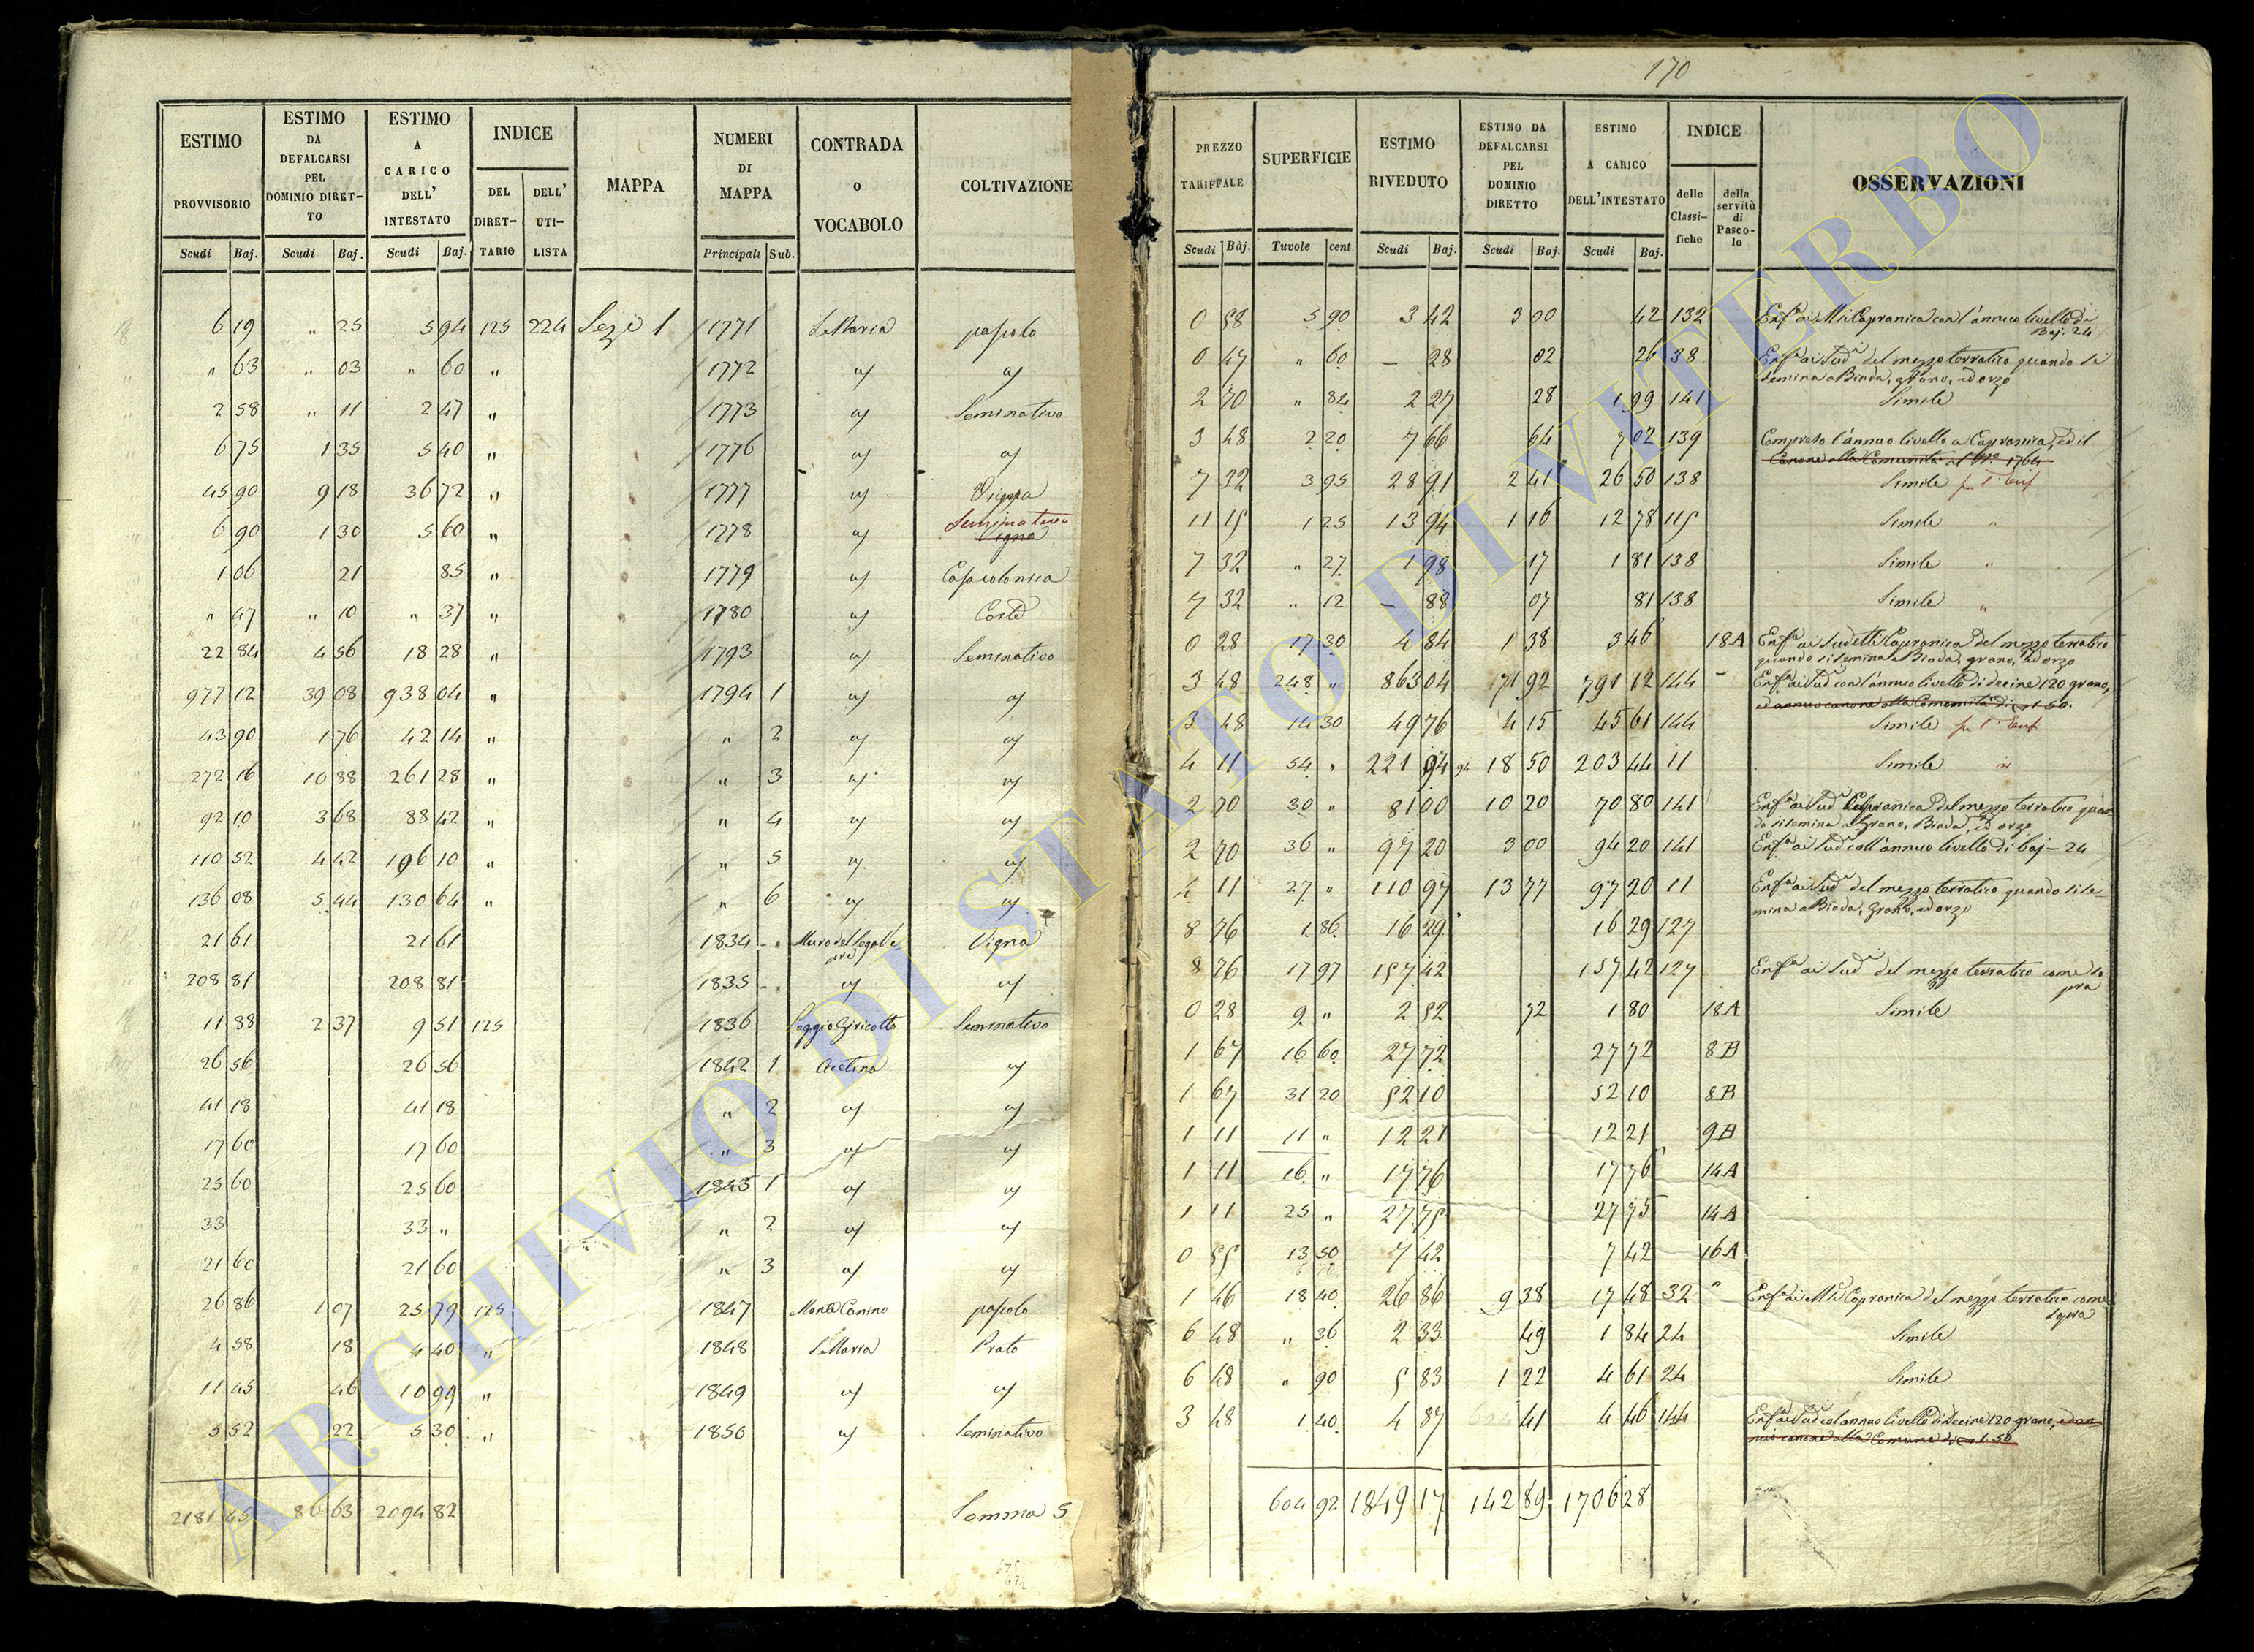 170
ESTIMO PROVVISORIO Scudi Baj.
ESTIMO DA DEFALCARSI PEL DOMINIO DIRET-TO Scudi Baj.
ESTIMO A CARICO DELL' INTESTATO Scudi Baj.
INDICE DEL DIRET-TARIO DELL' UTI-LISTA
MAPPA
NUMERI DI MAPPA Principali Sub.
CONTRADA o VOCABOLO
COLTIVAZIONE
6 19 " 25 5 94 125 224 Sez.e 1 1771 S. Maria pascolo
" 63 " 03 " 60 " 1772 " "
2 58 " 11 2 47 " 1773 " Seminativo
6 75 1 35 5 40 " 1776 " "
45 90 9 18 36 72 " 1777 " Vigna
6 90 1 30 5 60 " 1778 " Seminativo Vigna
1 06 21 85 " 1779 " Casa colonica
" 47 " 10 " 37 " 1780 " Corte
22 84 4 56 18 28 " 1793 " Seminativo
977 12 39 08 938 04 " 1794 1 " "
43 90 1 76 42 14 " " 2 " "
272 16 10 88 261 28 " " 3 " "
92 10 3 68 88 42 " " 4 " "
110 52 4 42 106 10 " " 5 " "
136 08 5 44 130 64 " " 6 " "
21 61 21 61 1834 Vigna
208 81 208 81 1835 " "
11 88 2 37 9 51 125 1836 Poggio Giricotto Seminativo
26 56 26 56 1842 1 "
41 18 41 18 " 2 " "
17 60 17 60 " 3 " "
25 60 25 60 1843 1 " "
33 33 " " 2 " "
21 60 21 60 " 3 " "
26 86 1 07 25 79 125 1847 Monte Canino pascolo
4 58 18 4 40 " 1848 S. Maria Prato
11 45 46 10 99 " 1849 " "
5 52 22 5 30 " 1850 " Seminativo
2181 45 86 63 2094 82 Somma S
PREZZO TARIFFALE Scudi Baj.
SUPERFICIE Tavole cent.
ESTIMO RIVEDUTO Scudi Baj.
ESTIMO DA DEFALCARSI PEL DOMINIO DIRETTO Scudi Baj.
ESTIMO A CARICO DELL'INTESTATO Scudi Baj.
INDICE delle Classi-fiche della servitù di Pasco-lo
OSSERVAZIONI
0 58 5 90 3 42 3 00 42 132 Enf.a ai M.si Capranica con l'annuo livello di
Baj. 24
0 47 " 60 – 28 02 26 38 Enf.a ai Sud.i del mezzo terratico quando si
semina a Biada, grano, ed orzo
2 70 " 84 2 27 28 1 99 141 Simile
3 48 2 20 7 66 64 7 02 139 Compreso l'annuo livello a Capranica, ed il
Canone alla Comunità al N.o 1764
7 32 3 95 28 91 2 41 26 50 138 Simile
11 15 1 25 13 94 1 16 12 78 115 Simile "
7 32 " 27 1 98 17 1 81 138 Simile "
7 32 " 12 – 88 07 81 138 Simile "
0 28 17 30 4 84 1 38 3 46 18A Enf.a ai Sudetti Capranica del mezzo terratico
quando si semina a Biada, grano, ed orzo
3 48 248 " 863 04 71 92 791 12 144 Enf.a ai Sud.i con l'annuo livello di decine 120 grano,
ed annuo canone alla Comunità di 1 50.
3 48 14 30 49 76 4 15 45 61 144 Simile
4 11 54 " 221 94 94 18 50 203 44 11 Simile
2 70 30 " 81 00 10 20 70 80 141 Enf.a ai Sud.i Capranica del mezzo terratico quan
do si semina a Grano, Biada, ed orzo
2 70 36 " 97 20 3 00 94 20 141 Enf.a ai Sud.i coll'annuo livello di baj – 24
4 11 27 " 110 97 13 77 97 20 11 Enf.a ai Sud.i del mezzo terratico quando si se-
mina a Biada, Grano, ed orzo
8 76 1 86 16 29 16 29 127
8 76 17 97 157 42 157 42 127 Enf.a ai Sud.i del mezzo terratico come so
pra
0 28 9 " 2 52 72 1 80 18A Simile
1 67 16 60 27 72 27 72 8B
1 67 31 20 52 10 52 10 8B
1 11 11 " 12 21 12 21 9B
1 11 16 " 17 76 17 76 14A
1 11 25 " 27 75 27 75 14A
0 55 13 50 7 42 7 42 16A
1 46 18 40 26 86 9 38 17 48 32 Enf.a ai M.si Capranica del mezzo terratico come
sopra
6 48 " 36 2 33 49 1 84 24 Simile
6 48 " 90 5 83 1 22 4 61 24 Simile
3 48 1 40 4 87 41 4 46 144 Enf.a ai Sud.i col annuo livello di decine 120 grano, ed an-
nuo canone alla Comune di 1 50
604 92 1849 17 142 89 1706 28
ARCHIVIO DI STATO DI VITERBO